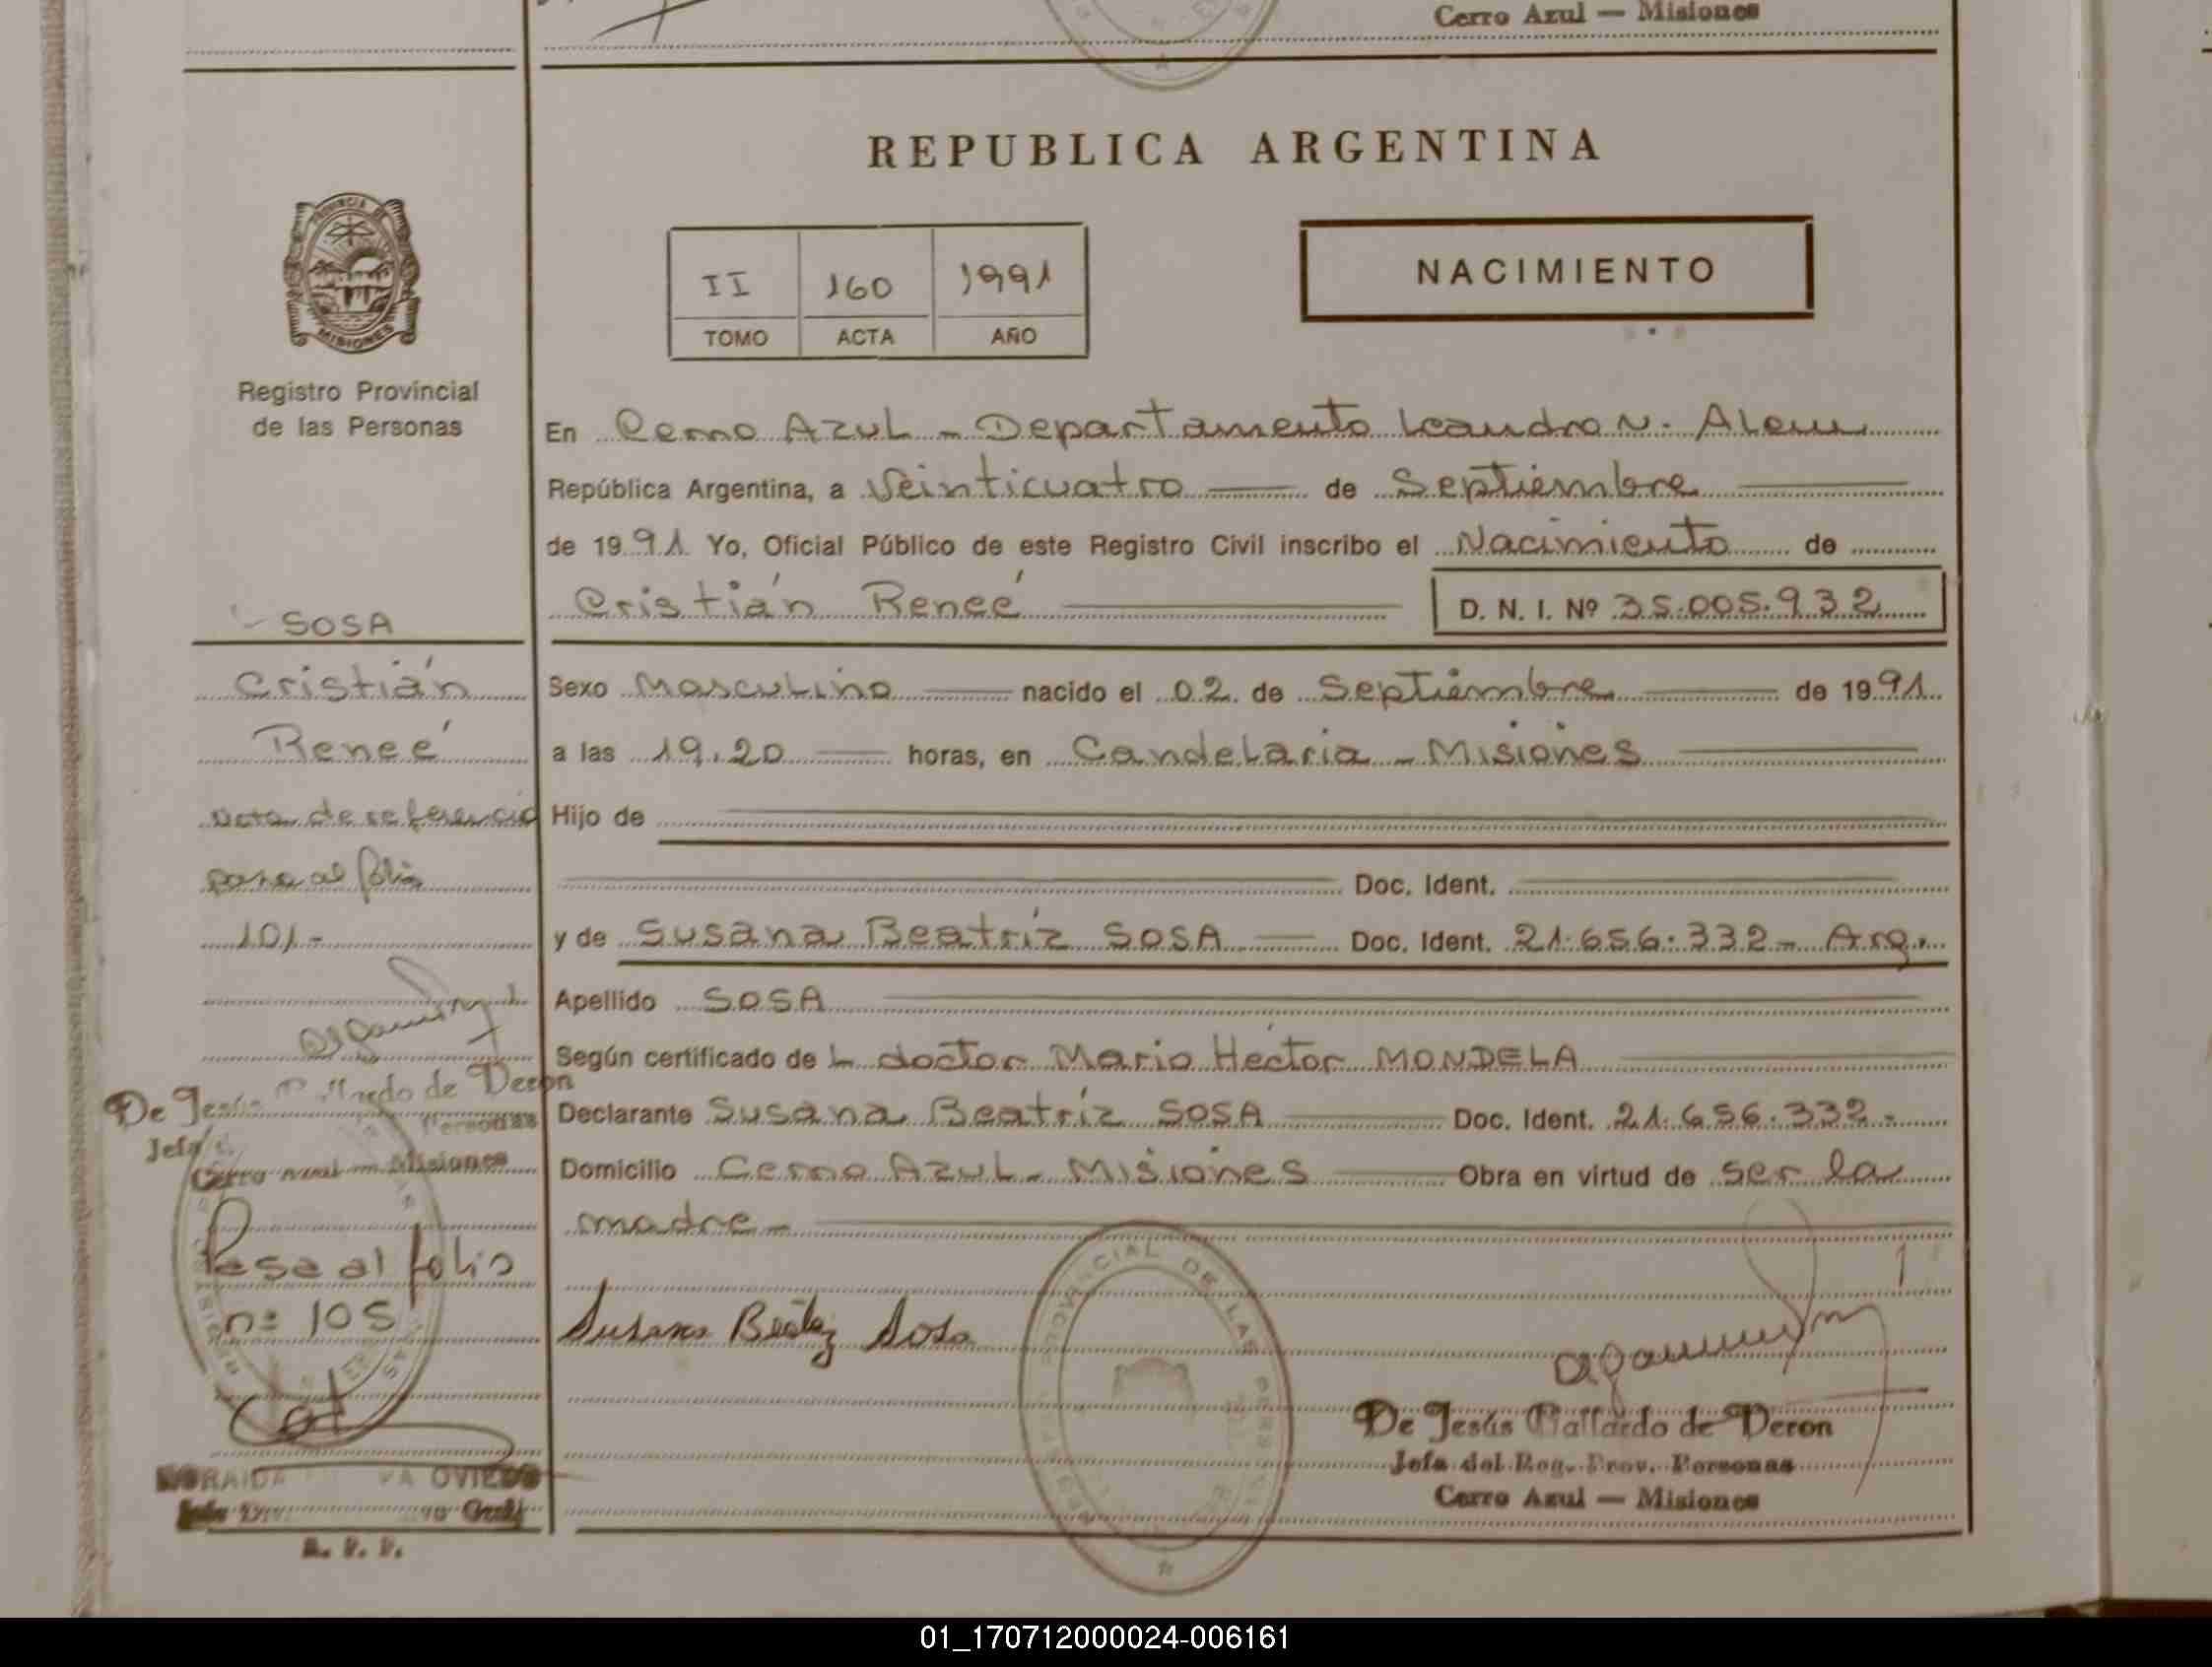 Cerro Azul — Misiones
REPUBLICA ARGENTINA
PROVINCIA DE
MISIONES
II 160 1991
TOMO ACTA AÑO
NACIMIENTO
Registro Provincial
de las Personas
En Cerro Azul - Departamento Leandro N. Alem
República Argentina, a Veinticuatro de Septiembre
de 1991 Yo, Oficial Público de este Registro Civil inscribo el Nacimiento de
Cristián Reneé D. N. I. Nº 35.005.932
Sexo Masculino nacido el 02 de Septiembre de 1991
a las 19.20 horas, en Candelaria - Misiones
Hijo de
Doc. Ident.
y de Susana Beatríz SOSA Doc. Ident. 21.656.332 - Arg.
Apellido SOSA
Según certificado de L doctor Mario Héctor MONDELA
Declarante Susana Beatríz SOSA Doc. Ident. 21.656.332.-
Domicilio Cerro Azul - Misiones Obra en virtud de ser la
madre -
Susana Beatriz Sosa
PROVINCIAL DE LAS PERS
De Jesús Gallardo de Deron
Jefa del Reg. Prov. Personas
Cerro Azul — Misiones
SOSA
Cristián
Reneé
Nota de referencia
pasa al folio
101-
De Jesús Gallardo de Deron
Jefa Personas
Cerro Azul — Misiones
Pasa al folio
nº 105
OVIEDO
R. P. P.
01_170712000024-006161